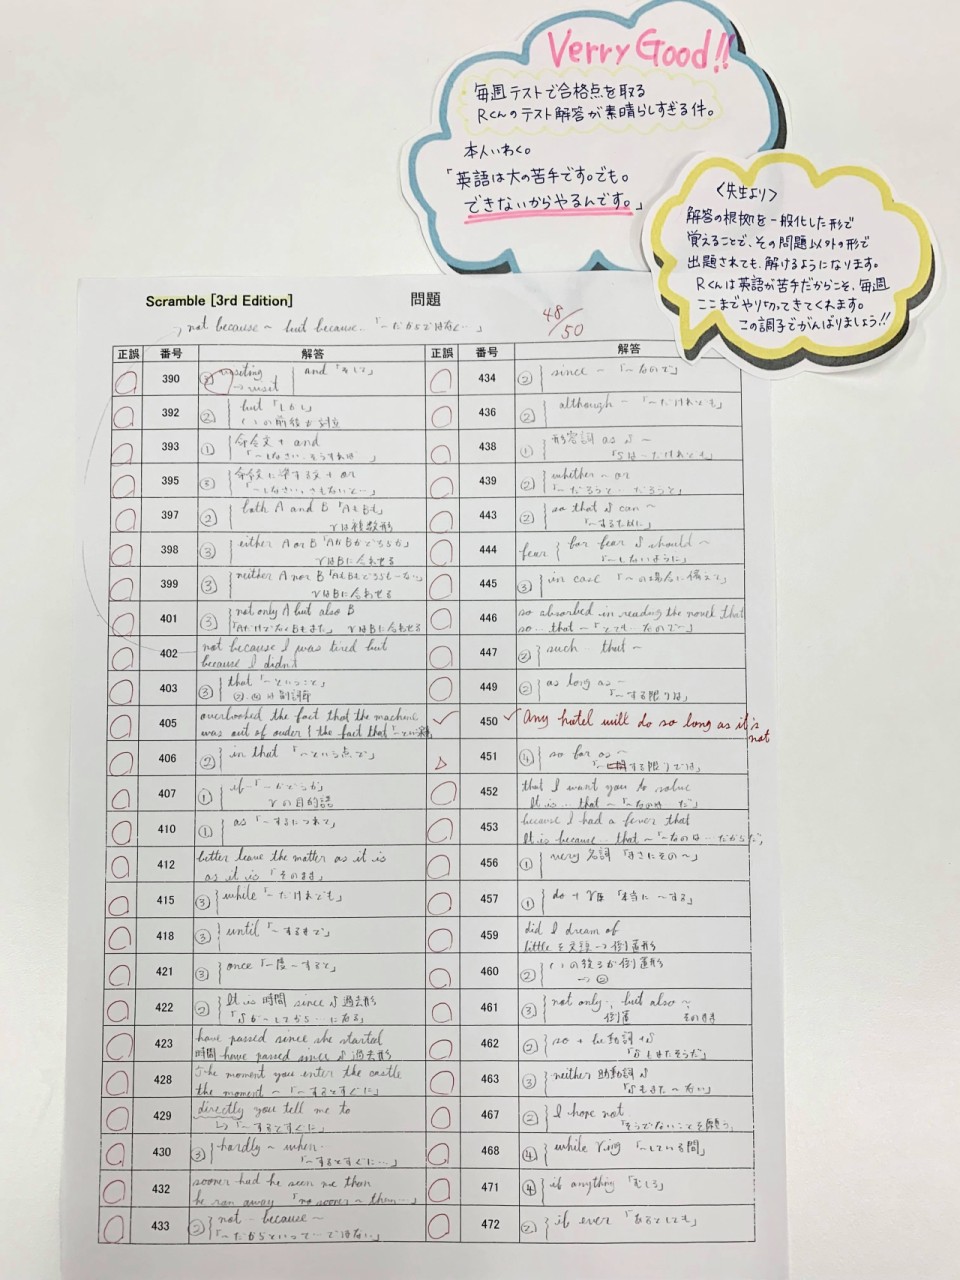 Verry Good!!
毎週テストで合格点を取る
Rくんのテスト解答が素晴らしすぎる件。
本人いわく。
「英語は大の苦手です。でも。
できないからやるんです。」
<先生より>
解答の根拠を一般化した形で
覚えることで、その問題以外の形で
出題されても、解けるようになります。
Rくんは英語が苦手だからこそ、毎週
ここまでやり切ってきてくれます。
この調子でがんばりましょう!!
Scramble [3rd Edition] 問題
not because ~ but because… 「~だからではなく…」
48/50
正誤 番号 解答 正誤 番号 解答
390 visiting → visit and 「そして」
434 ② since ~ 「~なので」
392 ② but 「しかし」
436 ② although ~ 「~だけれども」
393 ① 命令文 + and 「~しなさい、そうすれば
438 ① 形容詞 as S ~
395 ③ 「~しなさい、さもないと…」
439 ② whether ~ or 「~だろうと…だろうと」
397 ② both A and B 「AもBも」 Vは複数形
443 ② so that S can ~ 「~するために」
398 ③ either A or B 「AかBかどちらか」 VはBに合わせる
444 fear for fear S should ~ 「~しないように」
399 ③ neither A nor B 「AもBもどちらも~ない」 VはBに合わせる
445 ③ in case 「~の場合に備えて」
401 ③ not only A but also B 「AだけでなくBもまた」 VはBに合わせる
446 so absorbed in reading the novel that
so … that ~ 「とても…なので~」
402 not because I was tired but
because I didn't
447 ② such … that ~
403 ③ that 「~ということ」
449 ② as long as ~ 「~する限りは」
405 overlooked the fact that the machine
was out of order the fact that
450 Any hotel will do so long as it is
not
406 ② in that 「~という点で」
451 ④ so far as ~
407 ① if 「~かどうか」 Vの目的語
452 that I want you to solve
It is … that ~
410 ① as 「~するにつれて」
453 because I had a fever that
It is because … that ~ 「~なのは…だからだ」
412 better leave the matter as it is
as it is 「そのまま」
456 ① very 名詞 「まさにその~」
415 ③ while 「~だけれども」
457 ① do + V原 「本当に~する」
418 ③ until 「~するまで」
459 did I dream of
little を文頭→倒置形
421 ③ once 「一度~すると」
460 ②
422 ② It is 時間 since S 過去形
461 ③ not only…, but also ~ 倒置
423 have passed since she started
時間 have passed since S 過去形
462 ② so + be動詞 + S 「Sもまたそうだ」
428 The moment you enter the castle
the moment ~ 「~するとすぐに」
463 ③ neither 助動詞 S 「Sもまた~ない」
429 directly you tell me to
「~するとすぐに」
467 ② I hope not 「そうでないことを願う」
430 ③ hardly ~ when… 「~するとすぐに…」
468 ④ while Ving 「~している間」
432 sooner had he seen me than
he ran away 「no sooner ~ than…」
471 ④ if anything 「むしろ」
433 ② not … because ~ 「~だからといって…ではない」
472 ② if ever 「あるとしても」